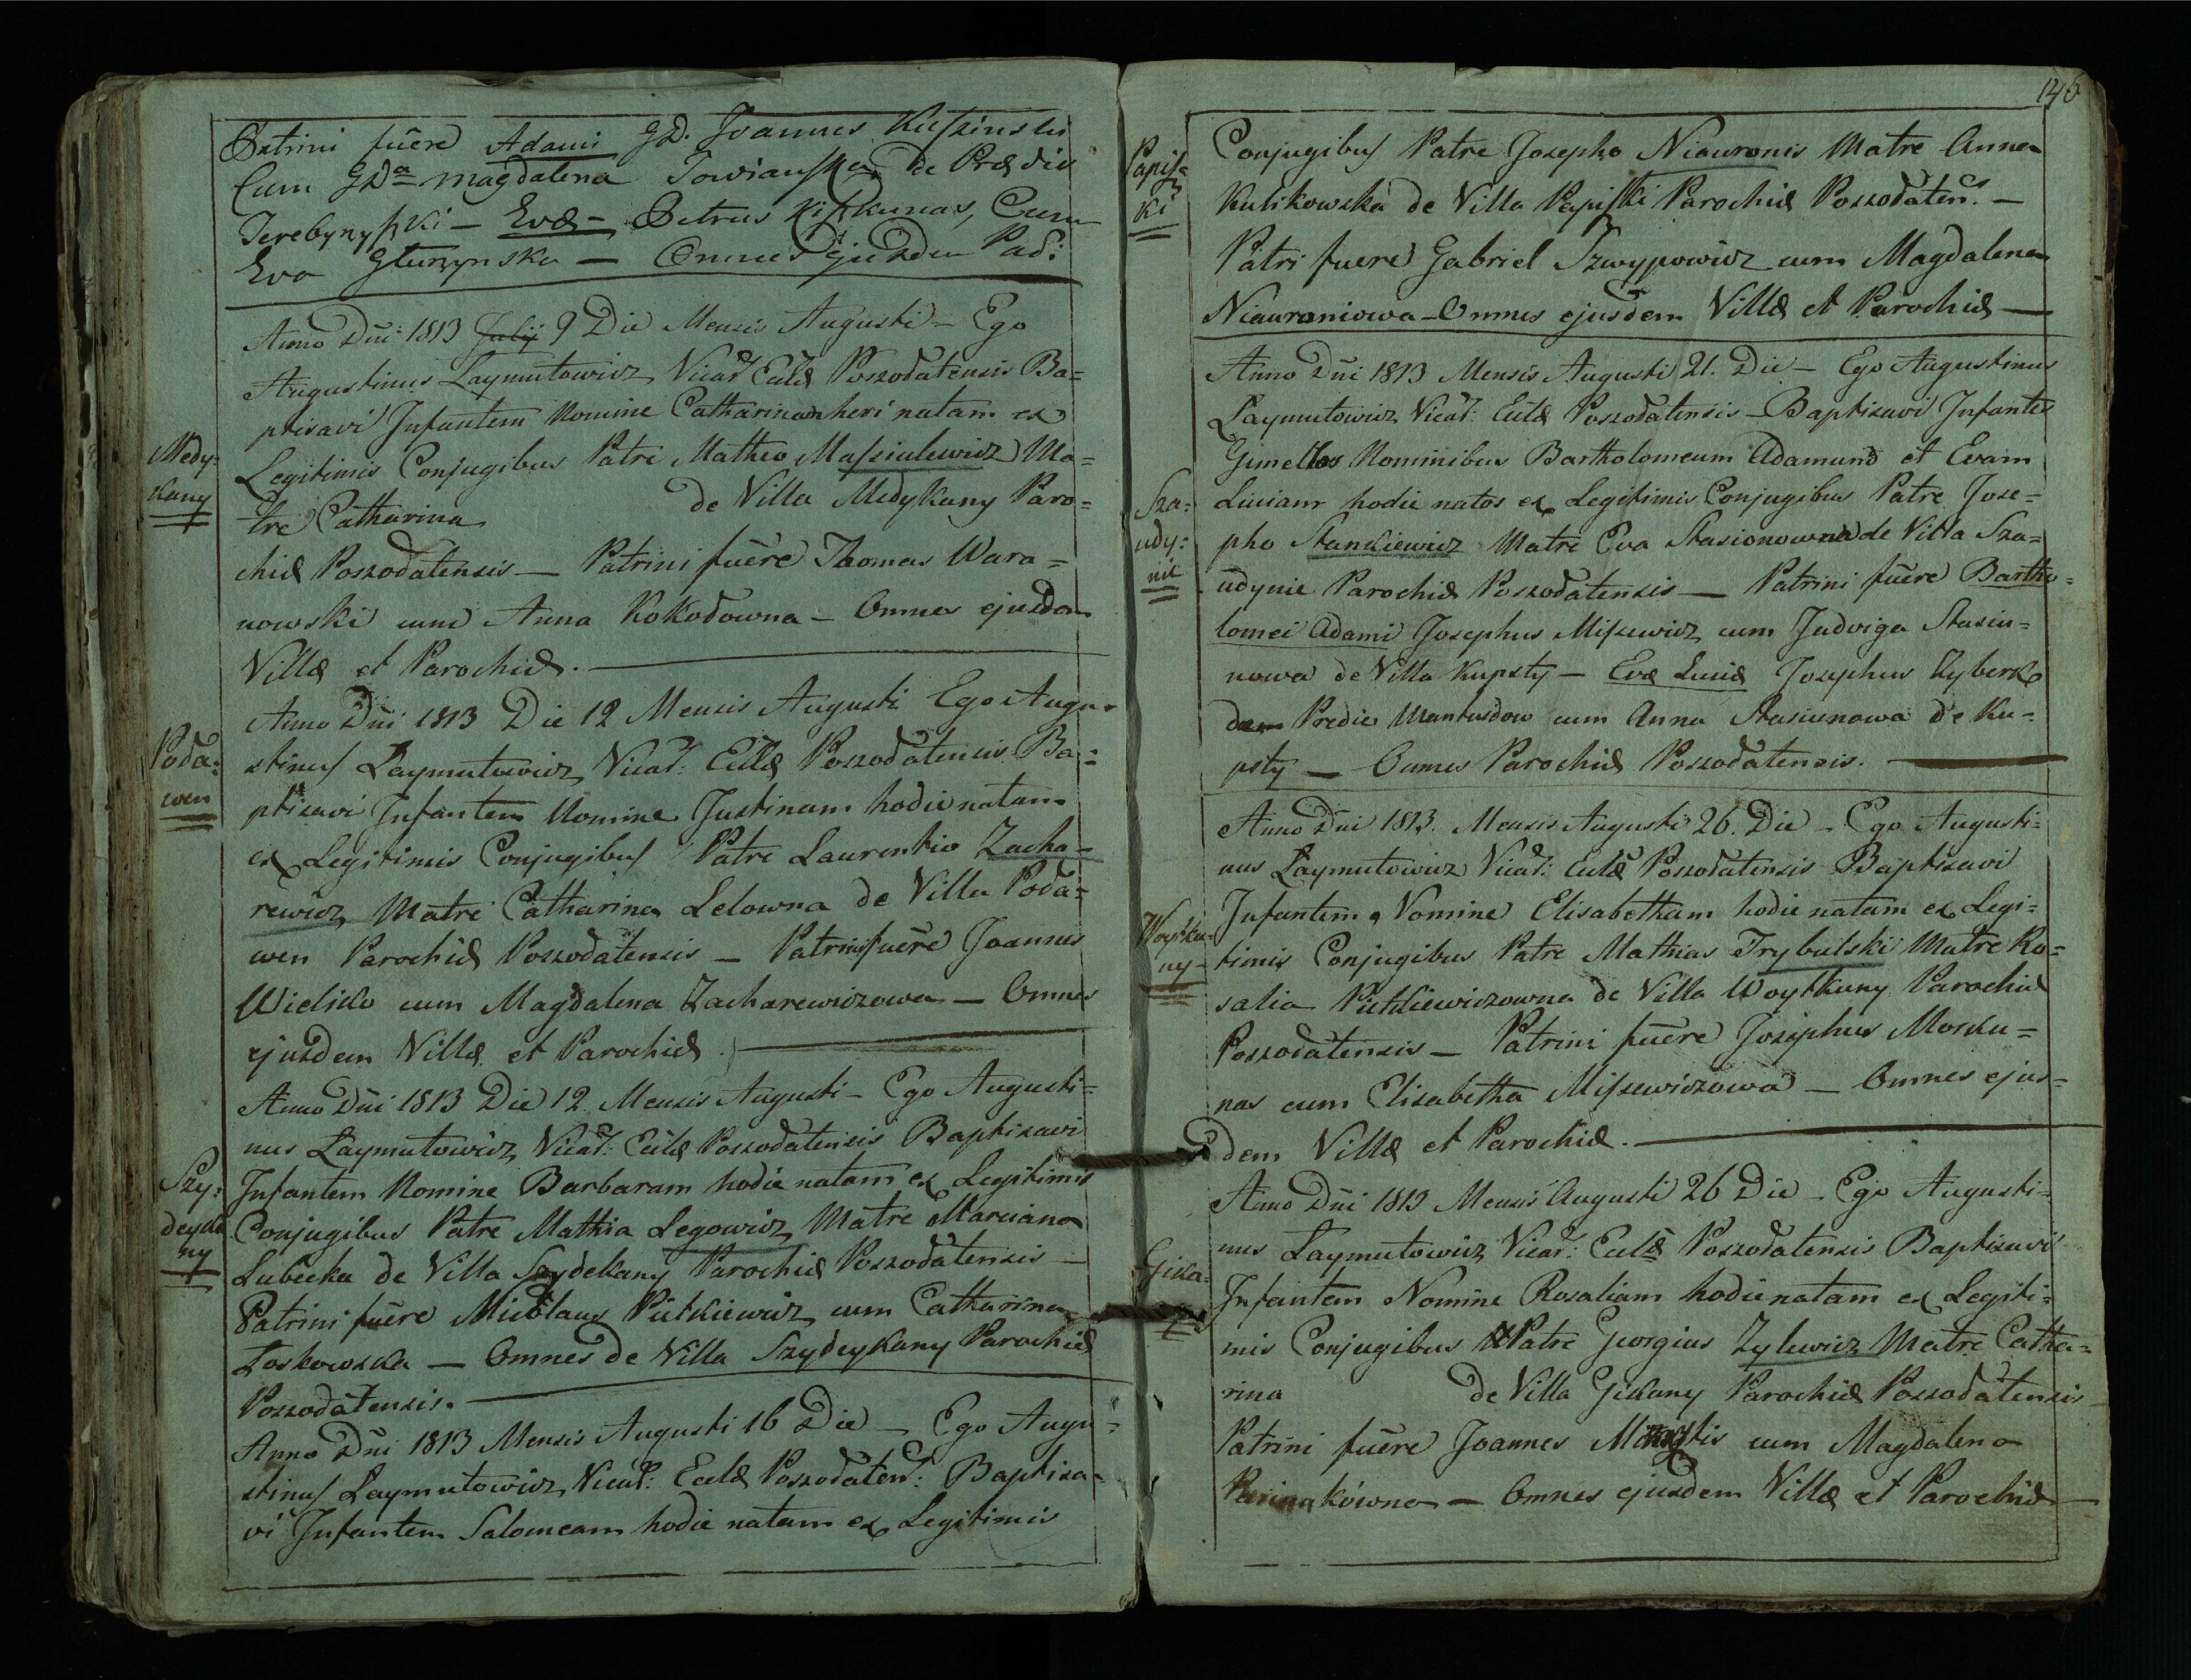 Patrini fuere Adami GD. Joannes
Cum GDa Magdalena Towianska de Prædio
Evæ Petrus Cum
Eva Omnes ejusdem Par:
Anno Dni 1813 Julij 9 Die Mensis Augusti Ego
Augustinus Laymutowicz Vicar Eccla Poszodatensis Ba=
ptisavi Infantem Nomine Catharinam heri natam ex
Medy=
Legitimis Conjugibus Patre Matheo Maszíulewicz Ma=
kany
tre Catharina de Villa Medykany Paro=
chiæ Poszodatensis — Patrini fuêre Thomas Wara=
nowski cum Anna Kokodowna — Omnes ejusdem
Villæ et Parochiæ.
Anno Dni 1813 Die 12 Mensis Augusti Ego Augu=
Poda=
stinus Laymutowicz Vicar: Ecclæ Poszodatensis Ba=
wen
ptisavi Infantem Nomine Justinam hodie natam
ex Legitimis Conjugibus Patre Laurentio Zacha=
rewicz Matre Catharina Lelowna de Villa Poda=
wen Parochiæ Poszodatensis — Patrini fuêre Joannes
Wielisko cum Magdalena Zacharewiczowa — Omnes
ejusdem Villæ et Parochiæ.
Anno Dni 1813 Die 12 Mensis Augusti — Ego Augusti=
nus Laymutowicz Vicar: Ecclæ Poszodatensis Baptisavi
Szy=
Infantem Nomine Barbaram hodie natam ex Legitimis
deyka
Conjugibus Patre Mathia Legowicz Matre Marciana
ny
Lubecka de Villa Szydekany Parochiæ Poszodatensis —
Patrini fuêre Nicolaus Pietkiewicz cum Catharina
Loskowska — Omnes de Villa Szydeykany Parochiæ
Poszodatensis.
Anno Dni 1813 Mensis Augusti 16 Die — Ego Augu=
stinus Laymutowicz Vicar: Ecclæ Poszodaten: Baptisa=
vi Infantem Salomeam hodie natam ex Legitimis
146
Conjugibus Patre Josepho Niauronis Matre Anna
Papisz
ki
Kulikowska de Villa Papiszki Parochiæ Poszodaten. —
Patri fuere Gabriel Szwypowicz cum Magdalena
Niauroniowa — Omnes ejusdem Villæ et Parochiæ —
Anno Dni 1813 Mensis Augusti 21. Die — Ego Augustinus
Laymutowicz Vicar: Ecclæ Poszodatensis — Baptisavi Infantes
Gemellos Nominibus Bartholomeum Adamum et Evam
Sza=
Luciam hodie natos ex Legitimis Conjugibus Patre Jose=
udy=
pho Stankiewicz Matre Eva Stasionowna de Villa Sza=
nie
udynie Parochiæ Poszodatensis — Patrini fuêre Bartho=
lomei Adami Josephus Miszewicz cum Judviga Stasiu=
nowa de Villa Kupsty — Evæ Luciæ Josephus Zyberk
Predio Mantwidow cum Anna Stasiunowa de Ku=
psty — Omnes Parochiæ Poszodatensis.
Anno Dni 1813. Mensis Augusti 26. Die — Ego Augusti=
nus Laymutowicz Vicar: Ecclæ Poszodatensis Baptisavi
Infantem Nomine Elisabetham hodie natam ex Legi=
Woytku=
ny
timis Conjugibus Patre Mathias Trybulski Matre Ro=
salia Pietkiewiczowna de Villa Woytkuny Parochiæ
Poszodatensis — Patrini fuêre Josephus Morku=
nas cum Elisabetha Miszewiczowa — Omnes ejus=
dem Villæ et Parochiæ.
Anno Dni 1813 Mensis Augusti 26 Die — Ego Augusti=
nus Laymutowicz Vicar: Ecclæ Poszodatensis Baptisavi
Gika=
Infantem Nomine Rosaliam hodie natam ex Legiti=
mis Conjugibus Patre Georgius Zylewicz Matre Catha=
rina de Villa Gikany Parochiæ Poszodatensis
Patrini fuêre Joannes cum Magdalena
— Omnes ejusdem Villæ et Parochiæ —